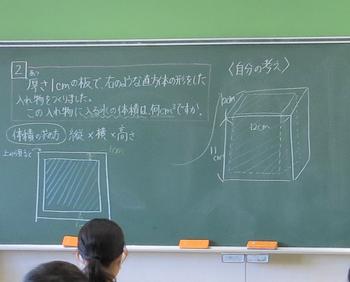 2
あつ
厚さ1cmの板で、右のような直方体の形をした
入れ物をつくりました。
この入れ物に入る水の体積は何cm³ですか。
体積の求め方 縦×横×高さ
上から見ると
1cm
〈自分の考え〉
12cm
11
cm